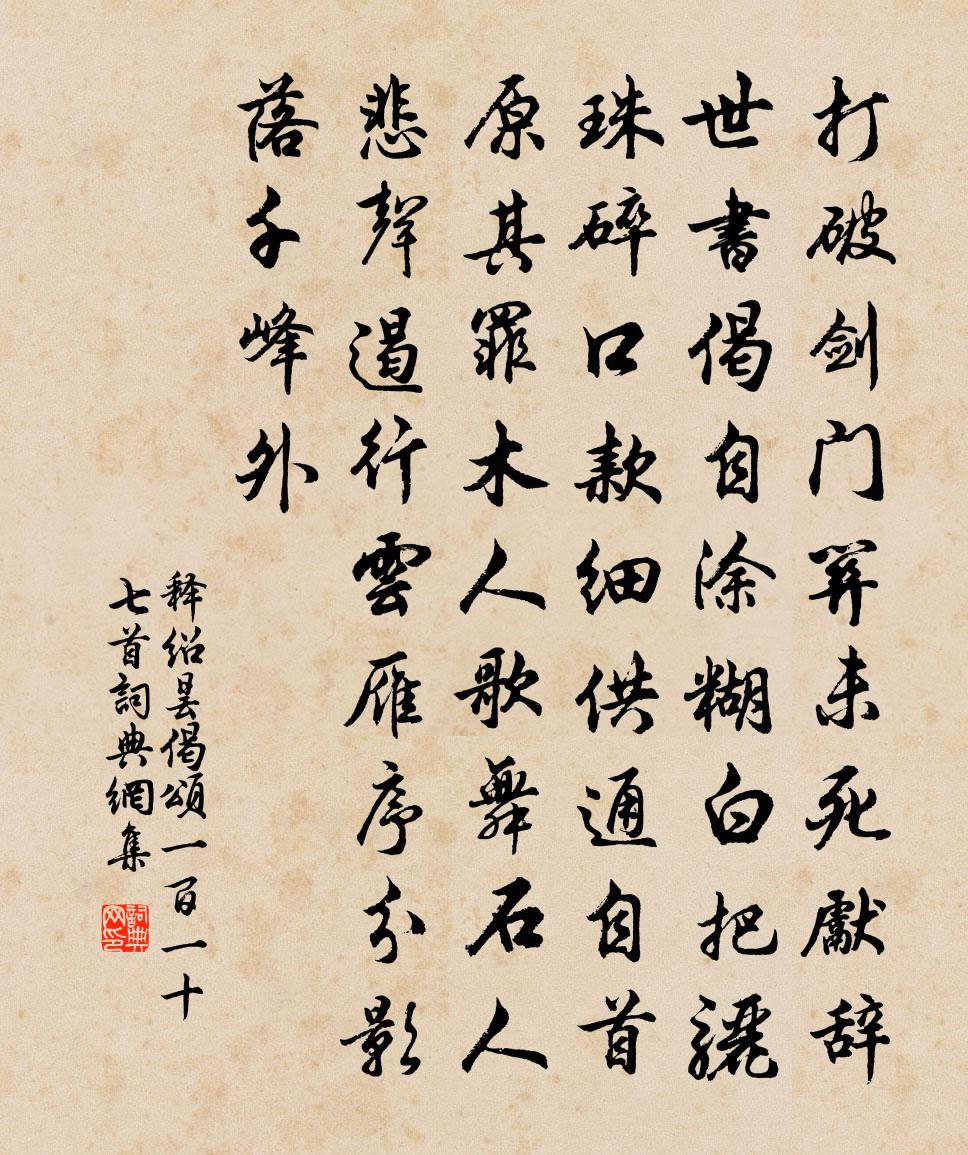 打破剑门关未死献辞
世書偈自涂糊白把驪
珠碎口款细供通自首
原其罪木人歌舞石人
悲聲遏行雲雁序分影
落千峰外
释绍昙偈頌一百一十
七首詞典網集
詞典网印